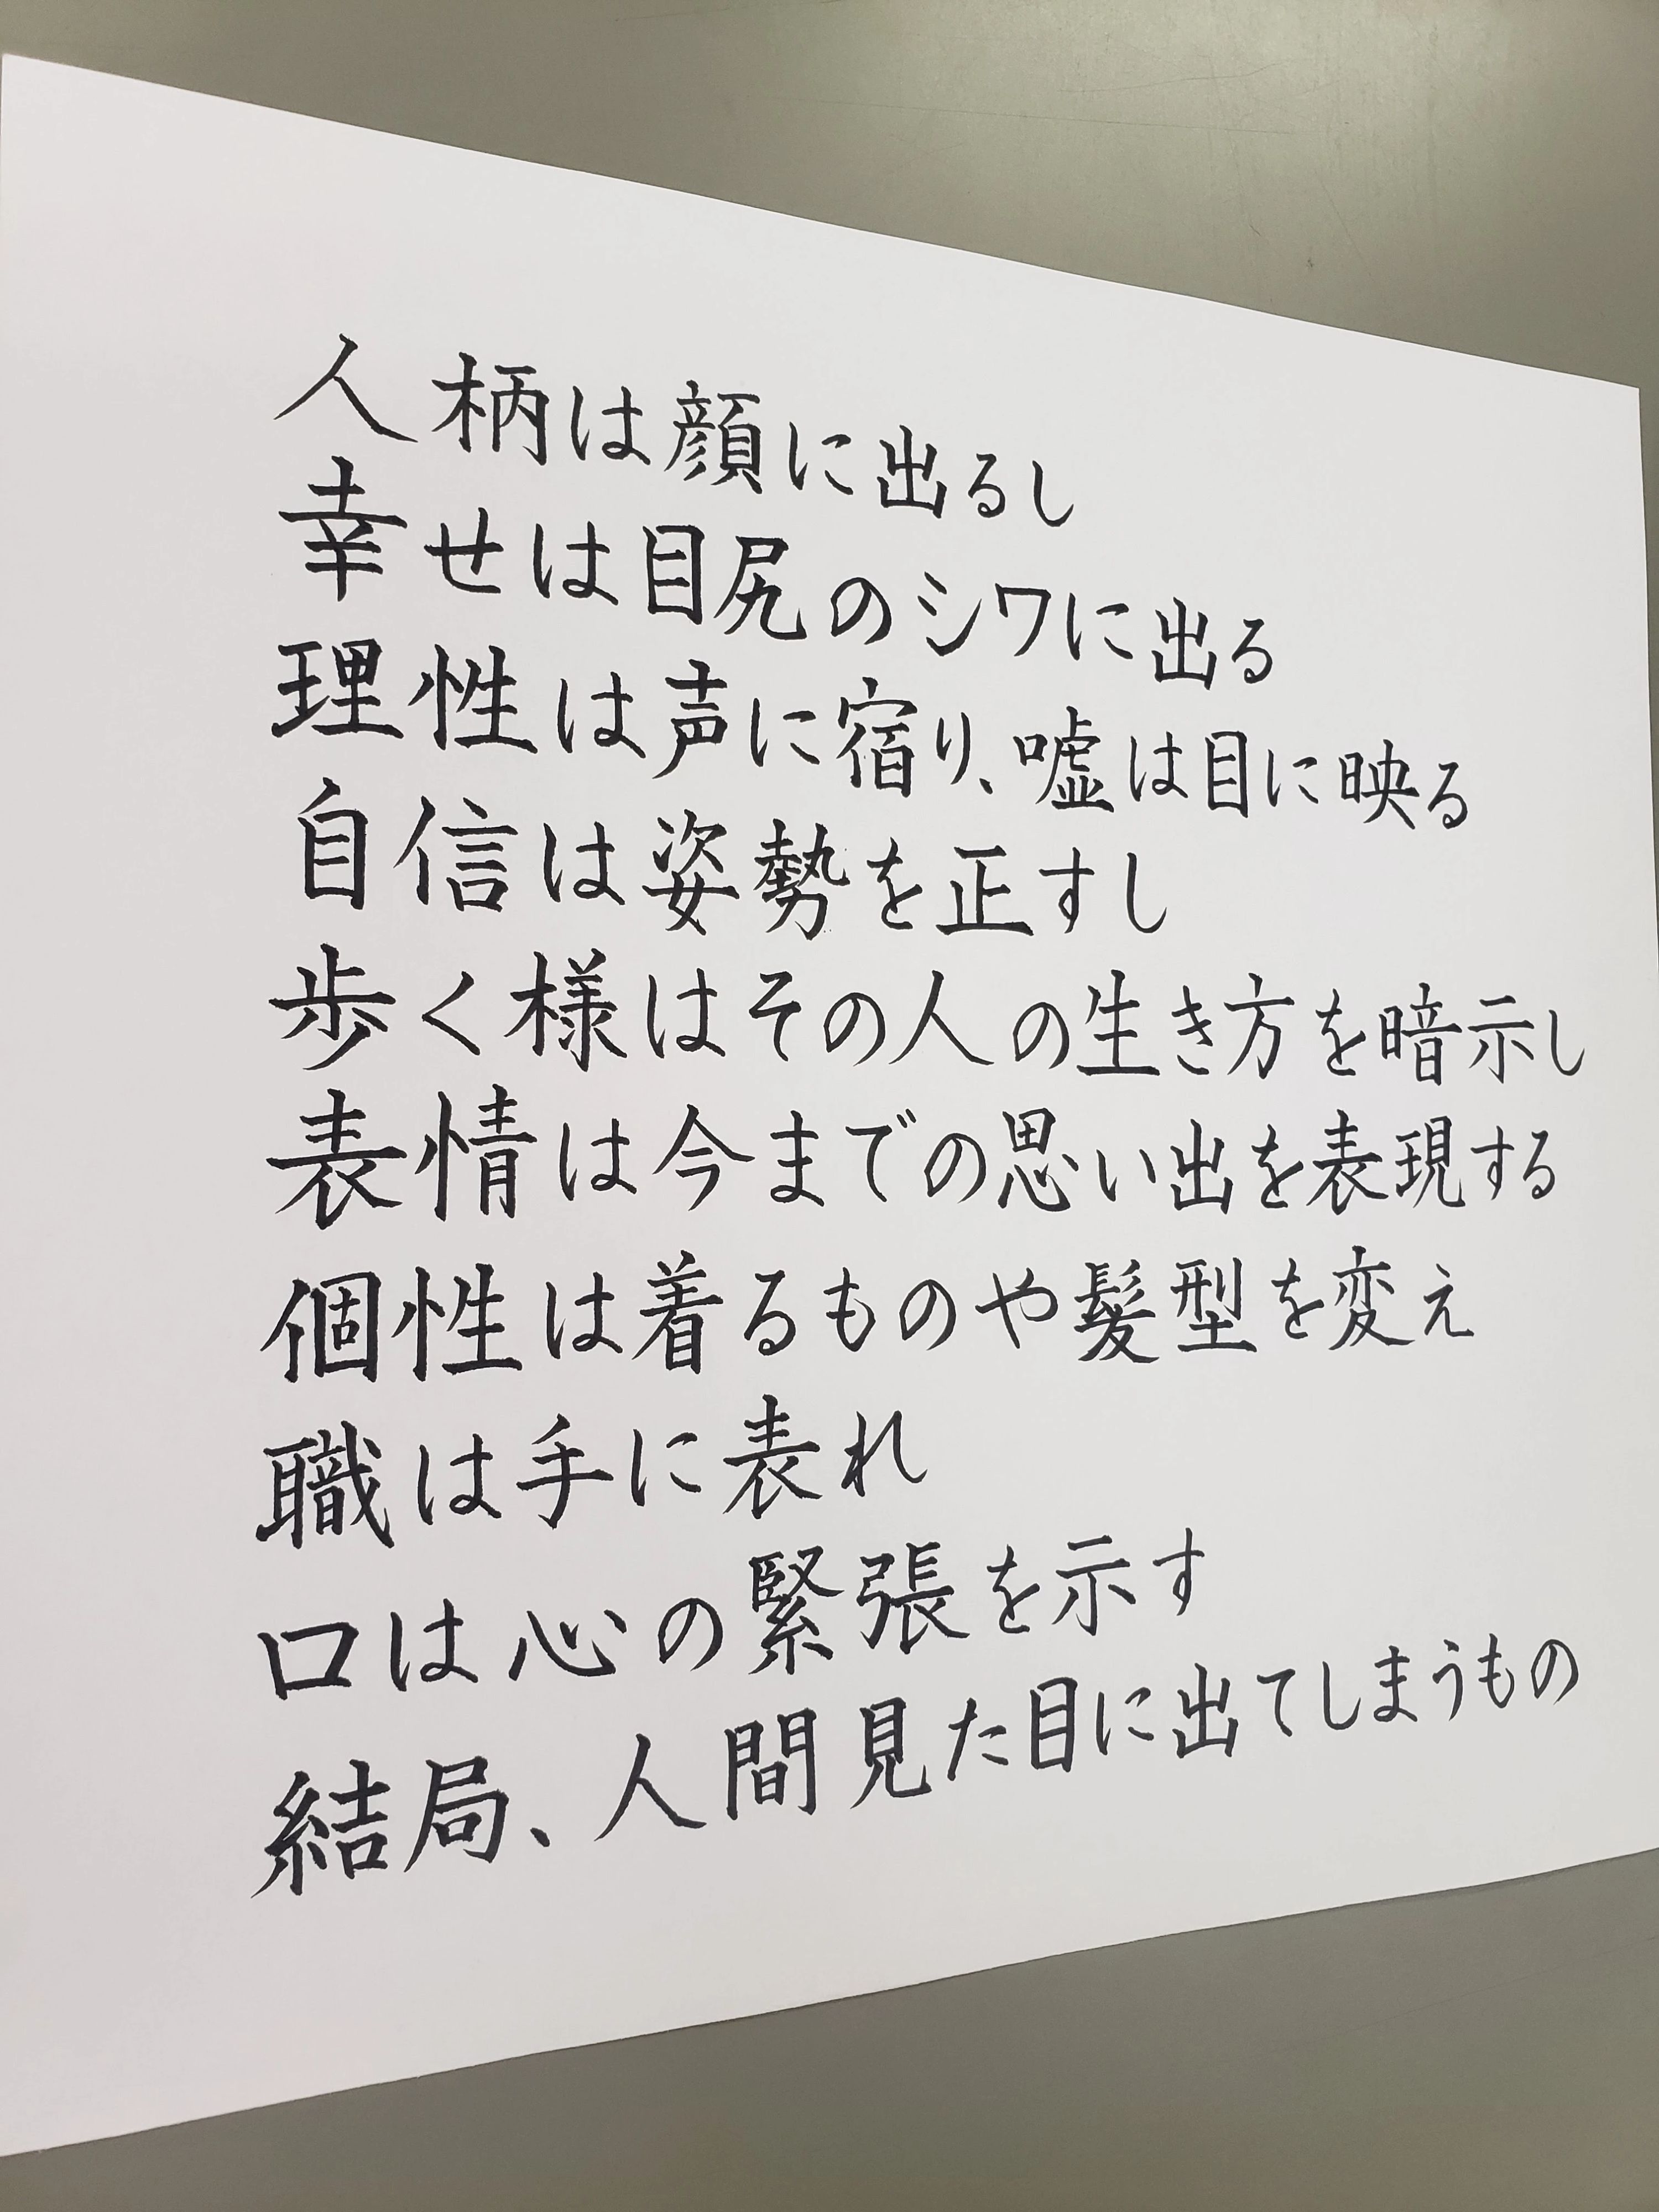 人柄は顔に出るし
幸せは目尻のシワに出る
理性は声に宿り、嘘は目に映る
自信は姿勢を正すし
歩く様はその人の生き方を暗示し
表情は今までの思い出を表現する
個性は着るものや髪型を変え
職は手に表れ
口は心の緊張を示す
結局、人間見た目に出てしまうもの